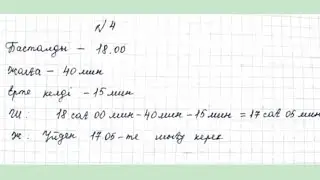 № 4
Басталды - 18.00
Жолға - 40 мин
Ерте келді - 15 мин
Ш: 18 сағ 00 мин - 40 мин - 15 мин = 17 сағ 05 мин
Ж: Үйден 17 05-те шығу керек